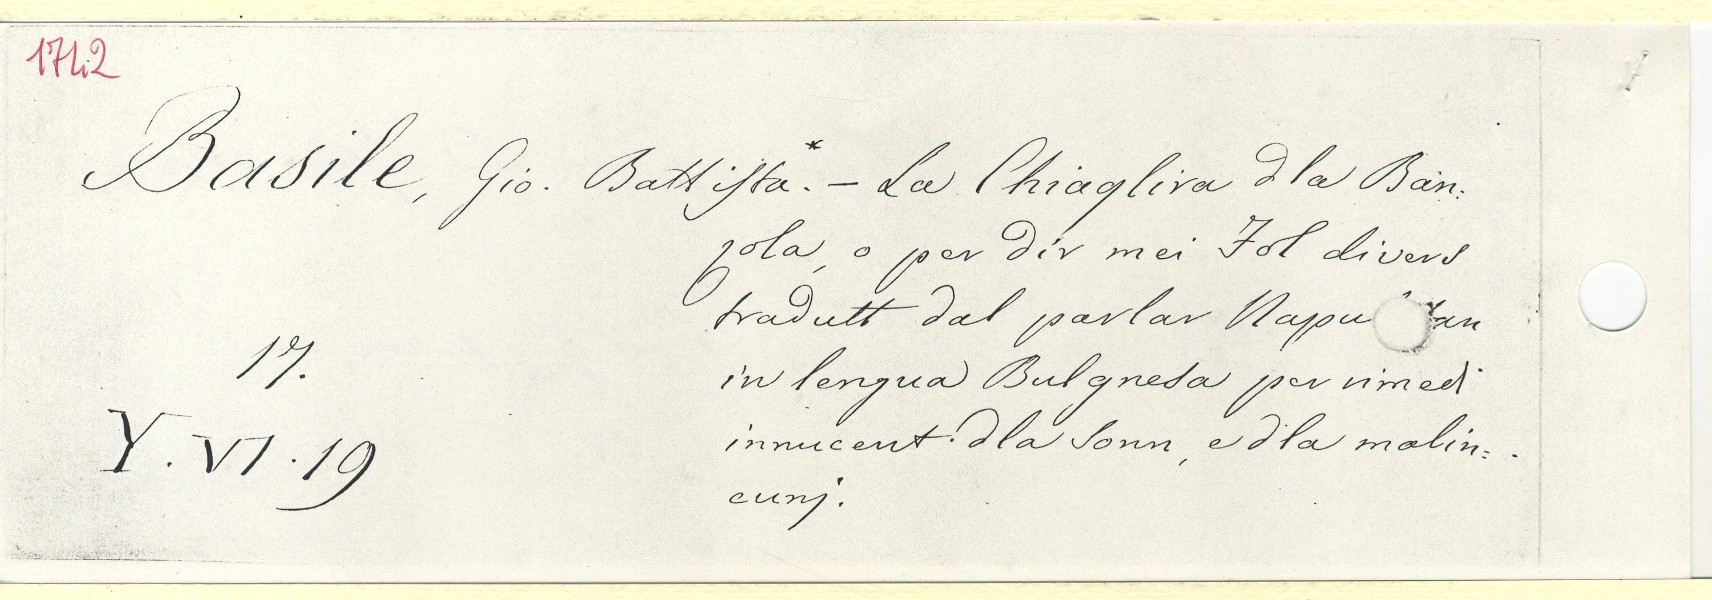 1742
Basile, Gio. Battista.* – La Chiaglira dla Ban:
zola, o per dir mei Fol divers
tradutt dal parlar Napu tan
in lengua Bulgnesa per rimedi
17.
innucent dla sonn, e dla malin=
Y.VI.19
cunj.